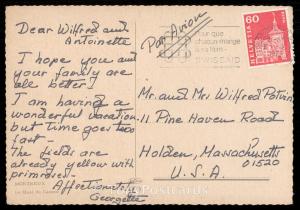 Dear Wilfred and
Antoinette
I hope you and
your family are
all better!
I am having a
wonderful vacation
but time goes too
fast —
The fields are
already yellow with
primroses.
Affectionately
Georgette
MONTREUX
Par Avion
Pour que
chacun mange
à sa faim
SWISSAID
60
HELVETIA
Mr. and Mrs. Wilfred Potvin
11 Pine Haven Road
Holden, Massachusetts
01520
U.S.A.
Postcards